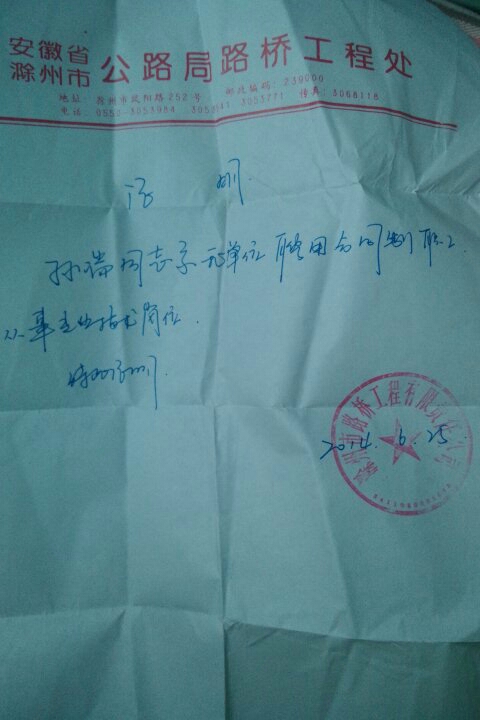 安徽省
滁州市 公路局路桥工程处
地址：滁州市凤阳路252号 邮政编码：239000
电话：0550-3053984 3053771 传真：3068118
证 明
孙瑞同志系我单位聘用合同制职工
从事专业技术岗位.
特此证明
滁州市路桥工程有限责任公司
2014.6.25